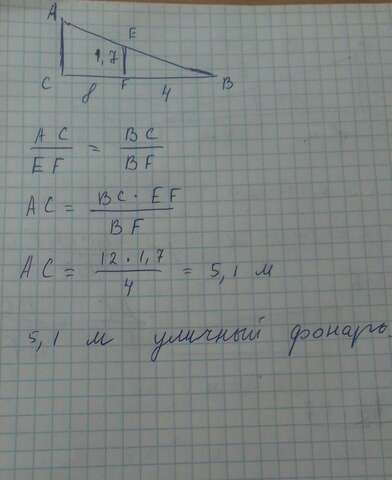 A
E
1,7
C 8 F 4 B
AC/EF = BC/BF
AC = BC · EF/BF
AC = 12 · 1,7/4 = 5,1 м
5,1 м уличный фонарь.